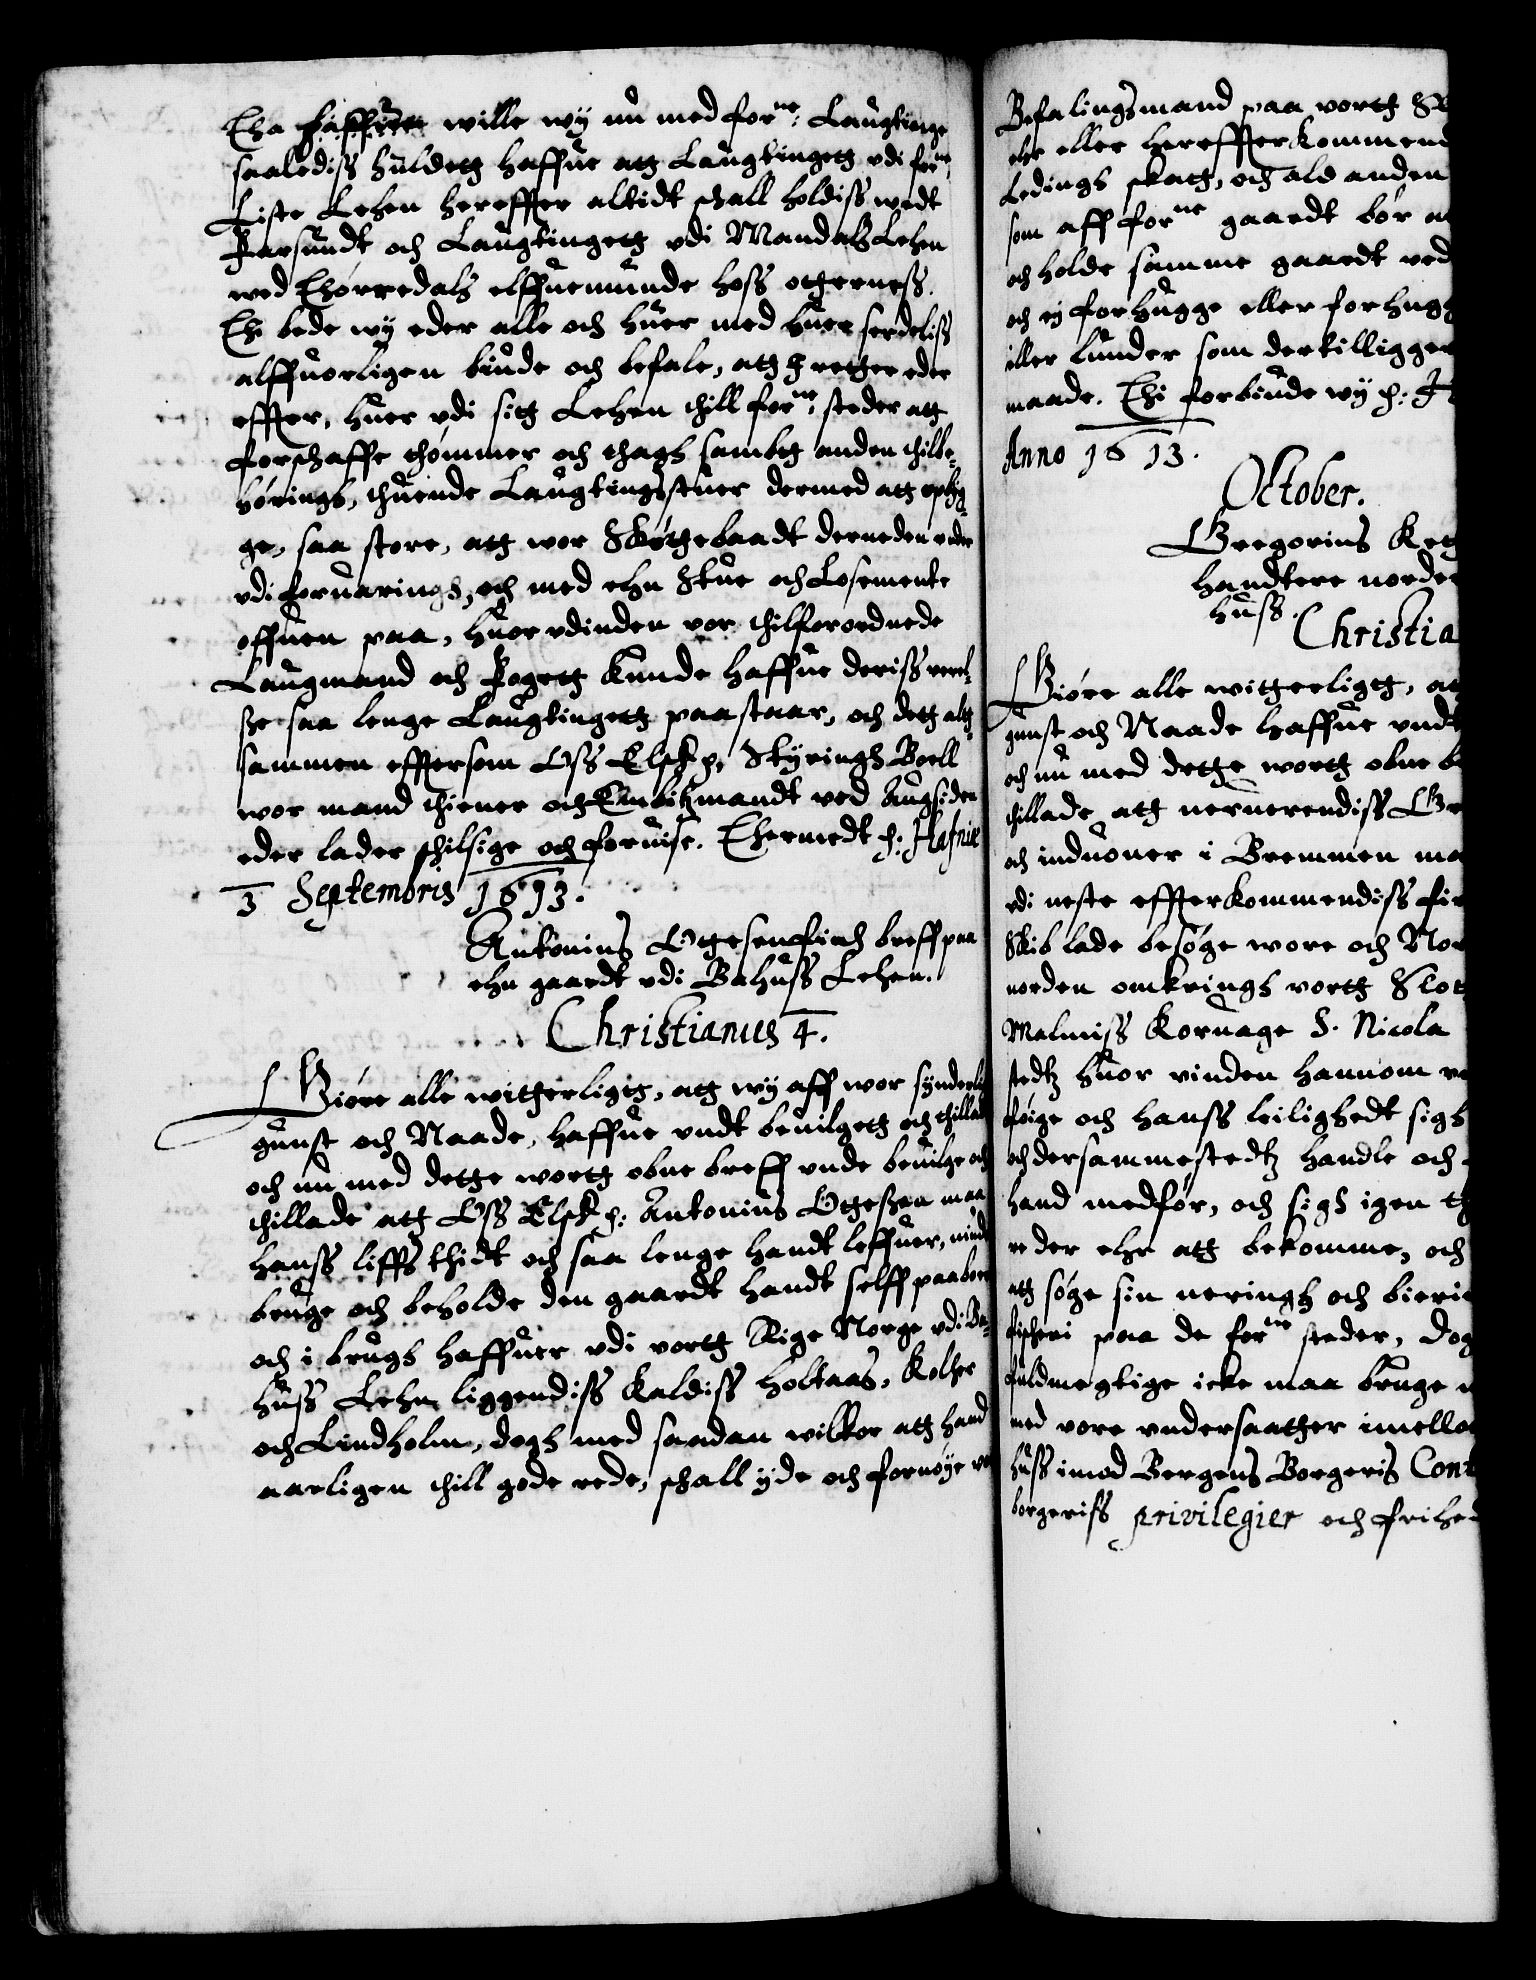 Tha haffue wille wy nu med forne: Laugtinge
saalediss huldetg haffue atg Laugtingetg vdi forne,
Liste Lehen hereffter altidt schall holdiss wedt
Farsundt och Laugtingetg vdi Mandals Lehen
wed Thørredals elffuemunde hoss otgerness.
Thi bede wy eder alle och huer med huer serdeliss
alffuorligen biude och befale, atg I retger eder
effter, huer vdi sitg Lehen thill forne, steder att
forschaffe thømmer och thagh sambtg anden thilbe-
hørings, thuende Laugtingsstuer dermed atg opbig-
ge, saa store, atg wor Skøtgebaadt derneden vnder
vdi foruarings, och med ehn Stue och Losemente
offuen paa, huor vdinden vor thilforordnede
Laugmand och Fogetg kunde haffue deriss verel-
sse saa lenge Laugtingetg paastaar, och detg altg
sammen efftersom Oss Elsk. p. Styringh Boell
wor mand thiener och Embitzmandt ved Augsiden
eder lader thilsige och foruise. Thermedt p: Hafniæ
3 Septembris 1613.
Antonius Otgesen fich breff paa
ehn gaardt vdi Bahuss Lehen.
Christianus 4.
Giøre alle witgerligtg, atg wy aff wor synderlig
gunst och Naade, haffue vndt beuilgetg och thilladt
och nu med detge wortg obne breff vnde beuilge och
thillade atg Oss Elsk. p: Antonius Otgessen maa
hanss liffs thidt och saa lenge handt leffuer, niude
bruge och beholde den gaardt handt selff paaboer
och i brugh haffuer vdi vortg Rige Norge vdi Ba-
huss Lehn liggendiss kaldiss Holtaas, Kolher
och Lindholm, dogh med saadan wilkor atg hand
aarligen thill gode rede, schall yde och fornøye vor
Befalingsmand paa vortg Sl
ehr eller hereffterkommend
Ledings skatg, och ald anden
som aff forne gaardt bør a
och holde samme gaardt ved
och ej forhugge eller forhugg
eller lunder som dertilligger
maade. Thi forbiude wy p: H
Anno 1613.
October.
Gregorius Ketg
handtere norden
huss.
Christia
Giøre alle witgerligtg, at
gunst och Naade haffue vndt
och nu med detge wortg obne b
thillade atg nerverendiss Gr
och induoner i Bremmen ma
vdi neste effterkommendiss fir
Skib lade besøge wore och Nor
norden omkrings vortg Slot
Malmiss Kornage S. Nicola
stedtz huor vinden hannom
føige och hanss leilighedt sigh
och dersammestedtz handle och
hand medfør, och sigh igen th
re der ehr atg bekomme, och
atg søge sin neringh och bierin
fischeri paa de forne steder, dog
fuldmegtige icke maa bruge
med vore vndersaatger imello
huss imod Bergens Borgeris Cont
borgeriss privilegier och frihed